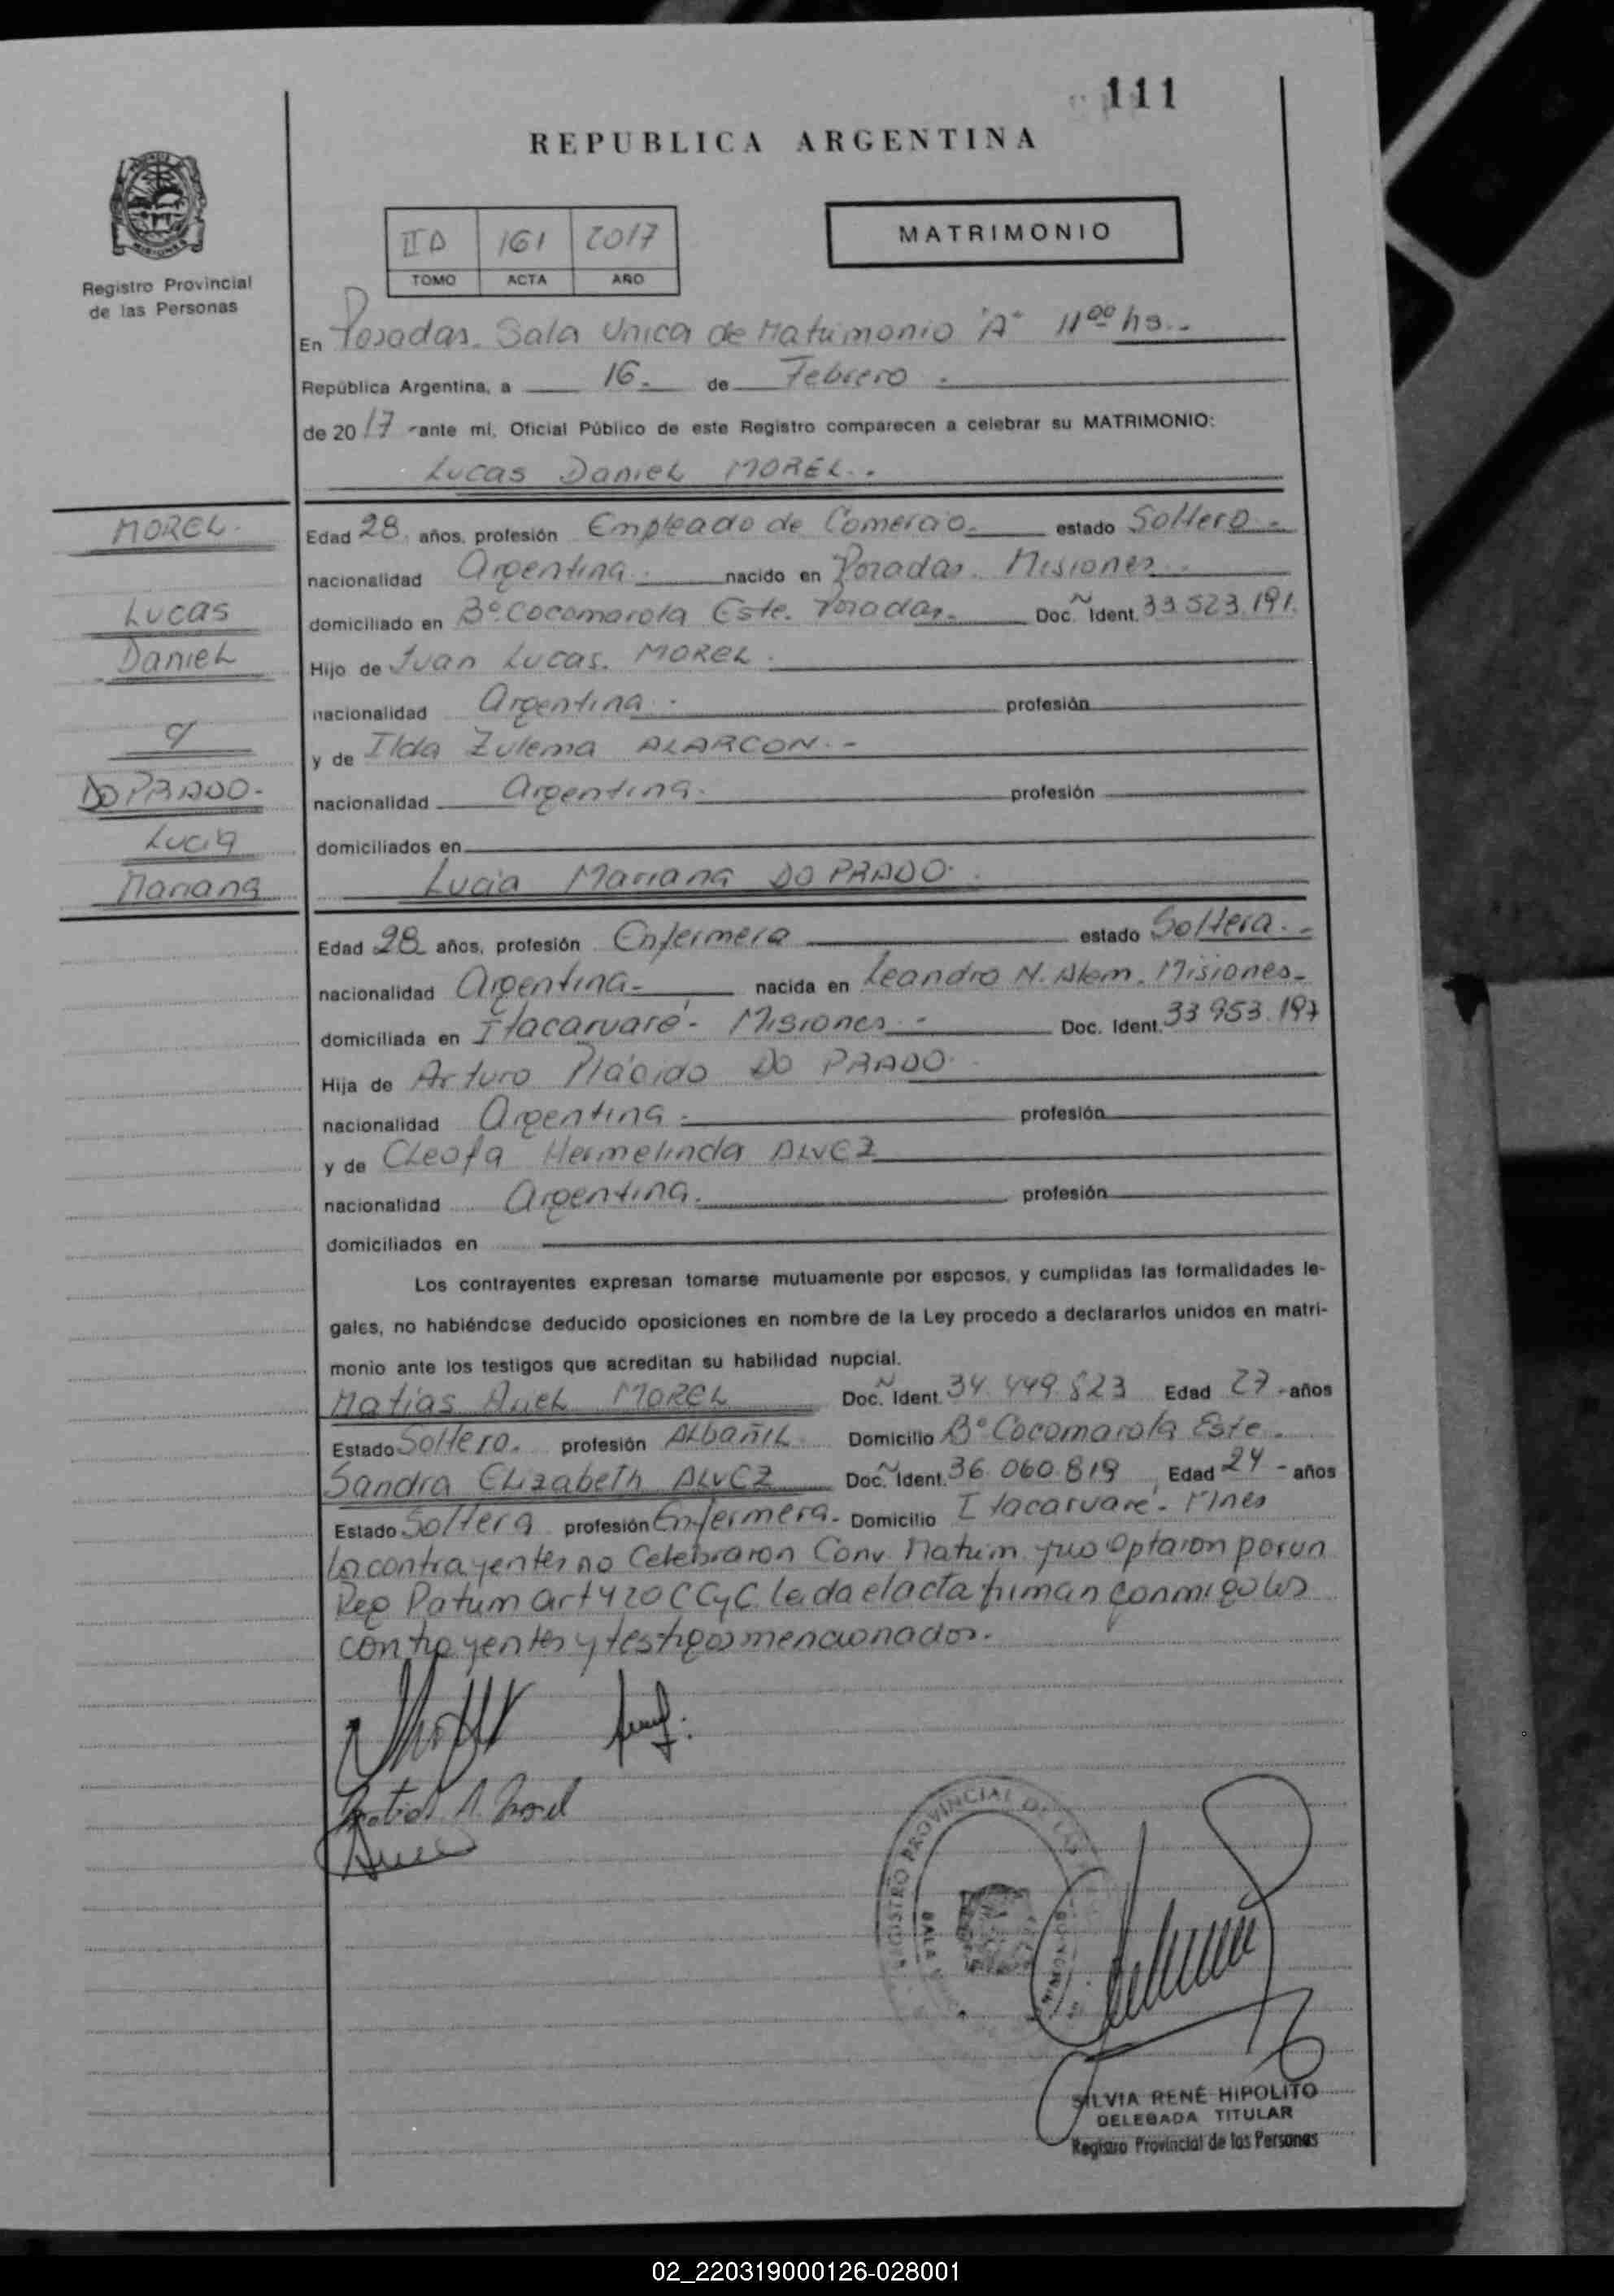 111
REPUBLICA ARGENTINA
MATRIMONIO
IID 161 2017
TOMO ACTA AÑO
Registro Provincial
de las Personas
En Posadas. Sala Unica de Matrimonio "A" 11⁰⁰ hs.-
República Argentina, a 16. de Febrero.
de 2017 -ante mí, Oficial Público de este Registro comparecen a celebrar su MATRIMONIO:
Lucas Daniel MOREL.
MOREL.
Lucas
Daniel
y
DO PRADO-
Lucia
Mariana
Edad 28 años, profesión Empleado de Comercio. estado Soltero.-
nacionalidad Argentina. nacido en Posadas. Misiones.
domiciliado en B° Cocomarola Este. Posadas. Doc. Ident. 33.523.191.
Hijo de Juan Lucas. MOREL.
nacionalidad Argentina. profesión
y de Ilda Zulema ALARCON.-
nacionalidad Argentina. profesión
domiciliados en
Lucia Mariana DO PRADO.
Edad 28 años, profesión Enfermera estado Soltera.-
nacionalidad Argentina.- nacida en Leandro N. Alem. Misiones.
domiciliada en Itacaruaré- Misiones.- Doc. Ident. 33 953.197
Hija de Arturo Plácido DO PRADO.
nacionalidad Argentina. profesión
y de Cleofa Hermelinda ALVEZ
nacionalidad Argentina. profesión
domiciliados en
Los contrayentes expresan tomarse mutuamente por esposos, y cumplidas las formalidades le-
gales, no habiéndose deducido oposiciones en nombre de la Ley procedo a declararlos unidos en matri-
monio ante los testigos que acreditan su habilidad nupcial.
Matias MOREL Doc. Ident. 34.449.823 Edad 27 -años
Estado Soltero. profesión Albañil Domicilio B° Cocomarola Este.
Sandra Elizabeth ALVEZ Doc. Ident. 36.060.819 Edad 24 - años
Estado Soltera profesión Enfermera. Domicilio Itacaruaré- Mnes
Los contrayentes no Celebraron Conv. Matrim. y no optaron por un
Reg Patrim art 420 CCyC. Leida el acta firman conmigo los
contrayentes y testigos mencionados.
Matias A. Morel
REGISTRO PROVINCIAL DE LAS
SALA
SILVIA RENÉ HIPOLITO
DELEGADA TITULAR
Registro Provincial de las Personas
02_220319000126-028001